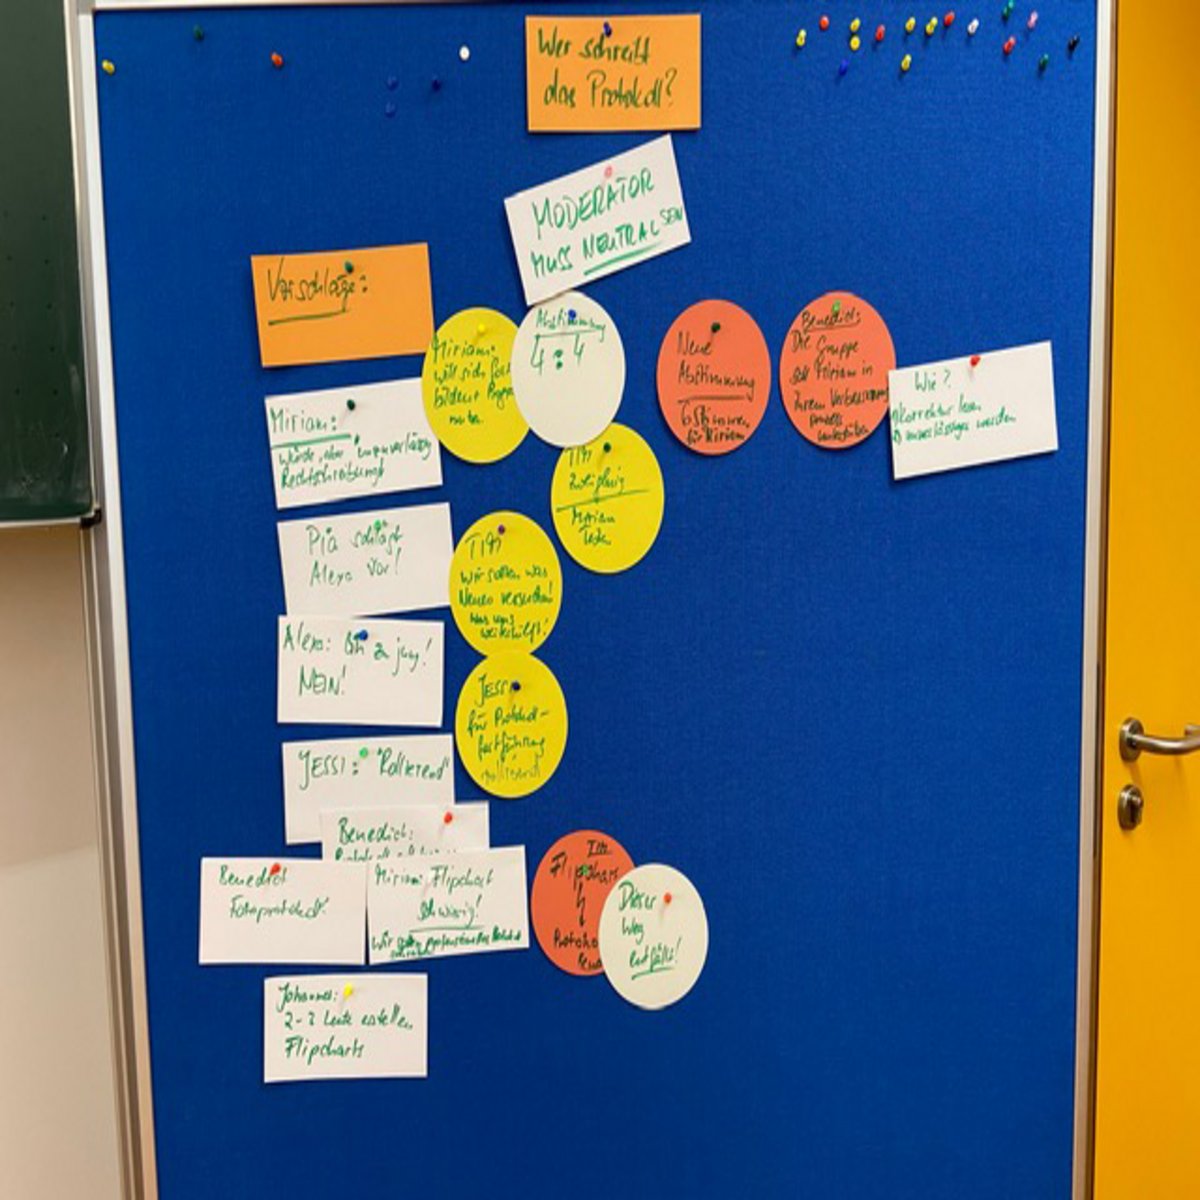 Wer schreibt
das Protokoll?
MODERATOR
MUSS NEUTRAL SEIN
Vorschläge:
Miriam:
würde, aber
Rechtschreibung!
Miriam:
will sich fort
bilden
Abstimmung
4:4
Neue
Abstimmung
6 Stimmen
für Miriam
Benedict:
Die Gruppe
soll Miriam in
ihrem Verbesserungs
prozess
unterstützen
Wie?
1) Korrektur lesen
2) werden
TIM
Miriam
Pia schlägt
Alexa vor!
TIM
wir sollten was
Neues versuchen!
Was uns
weiterhilft!
Alexa: Bin zu jung!
NEIN!
JESSI
für Protokoll-
fortführung
JESSI: "Rollierend"
Benedict:
Benedict
Fotoprotokoll!
Miriam: Flipchart
schwierig!
wir
Flipchart
Dieser
Weg
entfällt!
Johannes:
2-3 Leute erstellen
Flipcharts